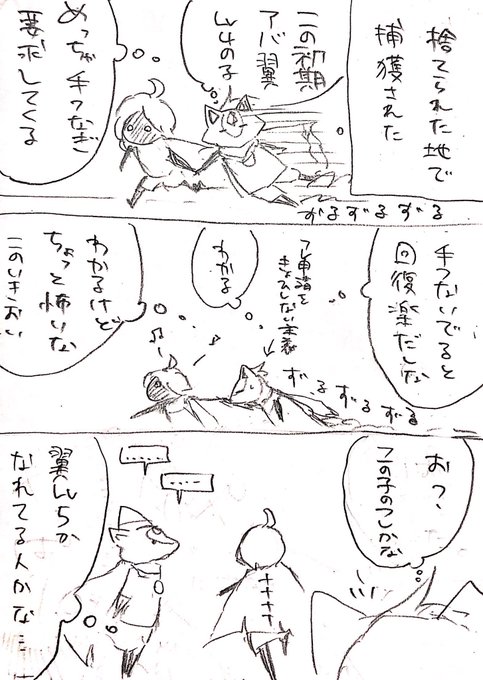 捨てられた地で
捕獲された
この初期
アバ翼
Lv4の子
めっちゃ手つなぎ
要求してくる
ずるずるずる
手つないでると
回復楽だしな
フレ申請を
きょひしない本表
わかる
わかるけど
ちょっと怖いな
このいきおい
ずるずるずる
おっ、
この子のつしかな
‥‥‥
‥‥‥
翼Lv5か
なれてる人かな…